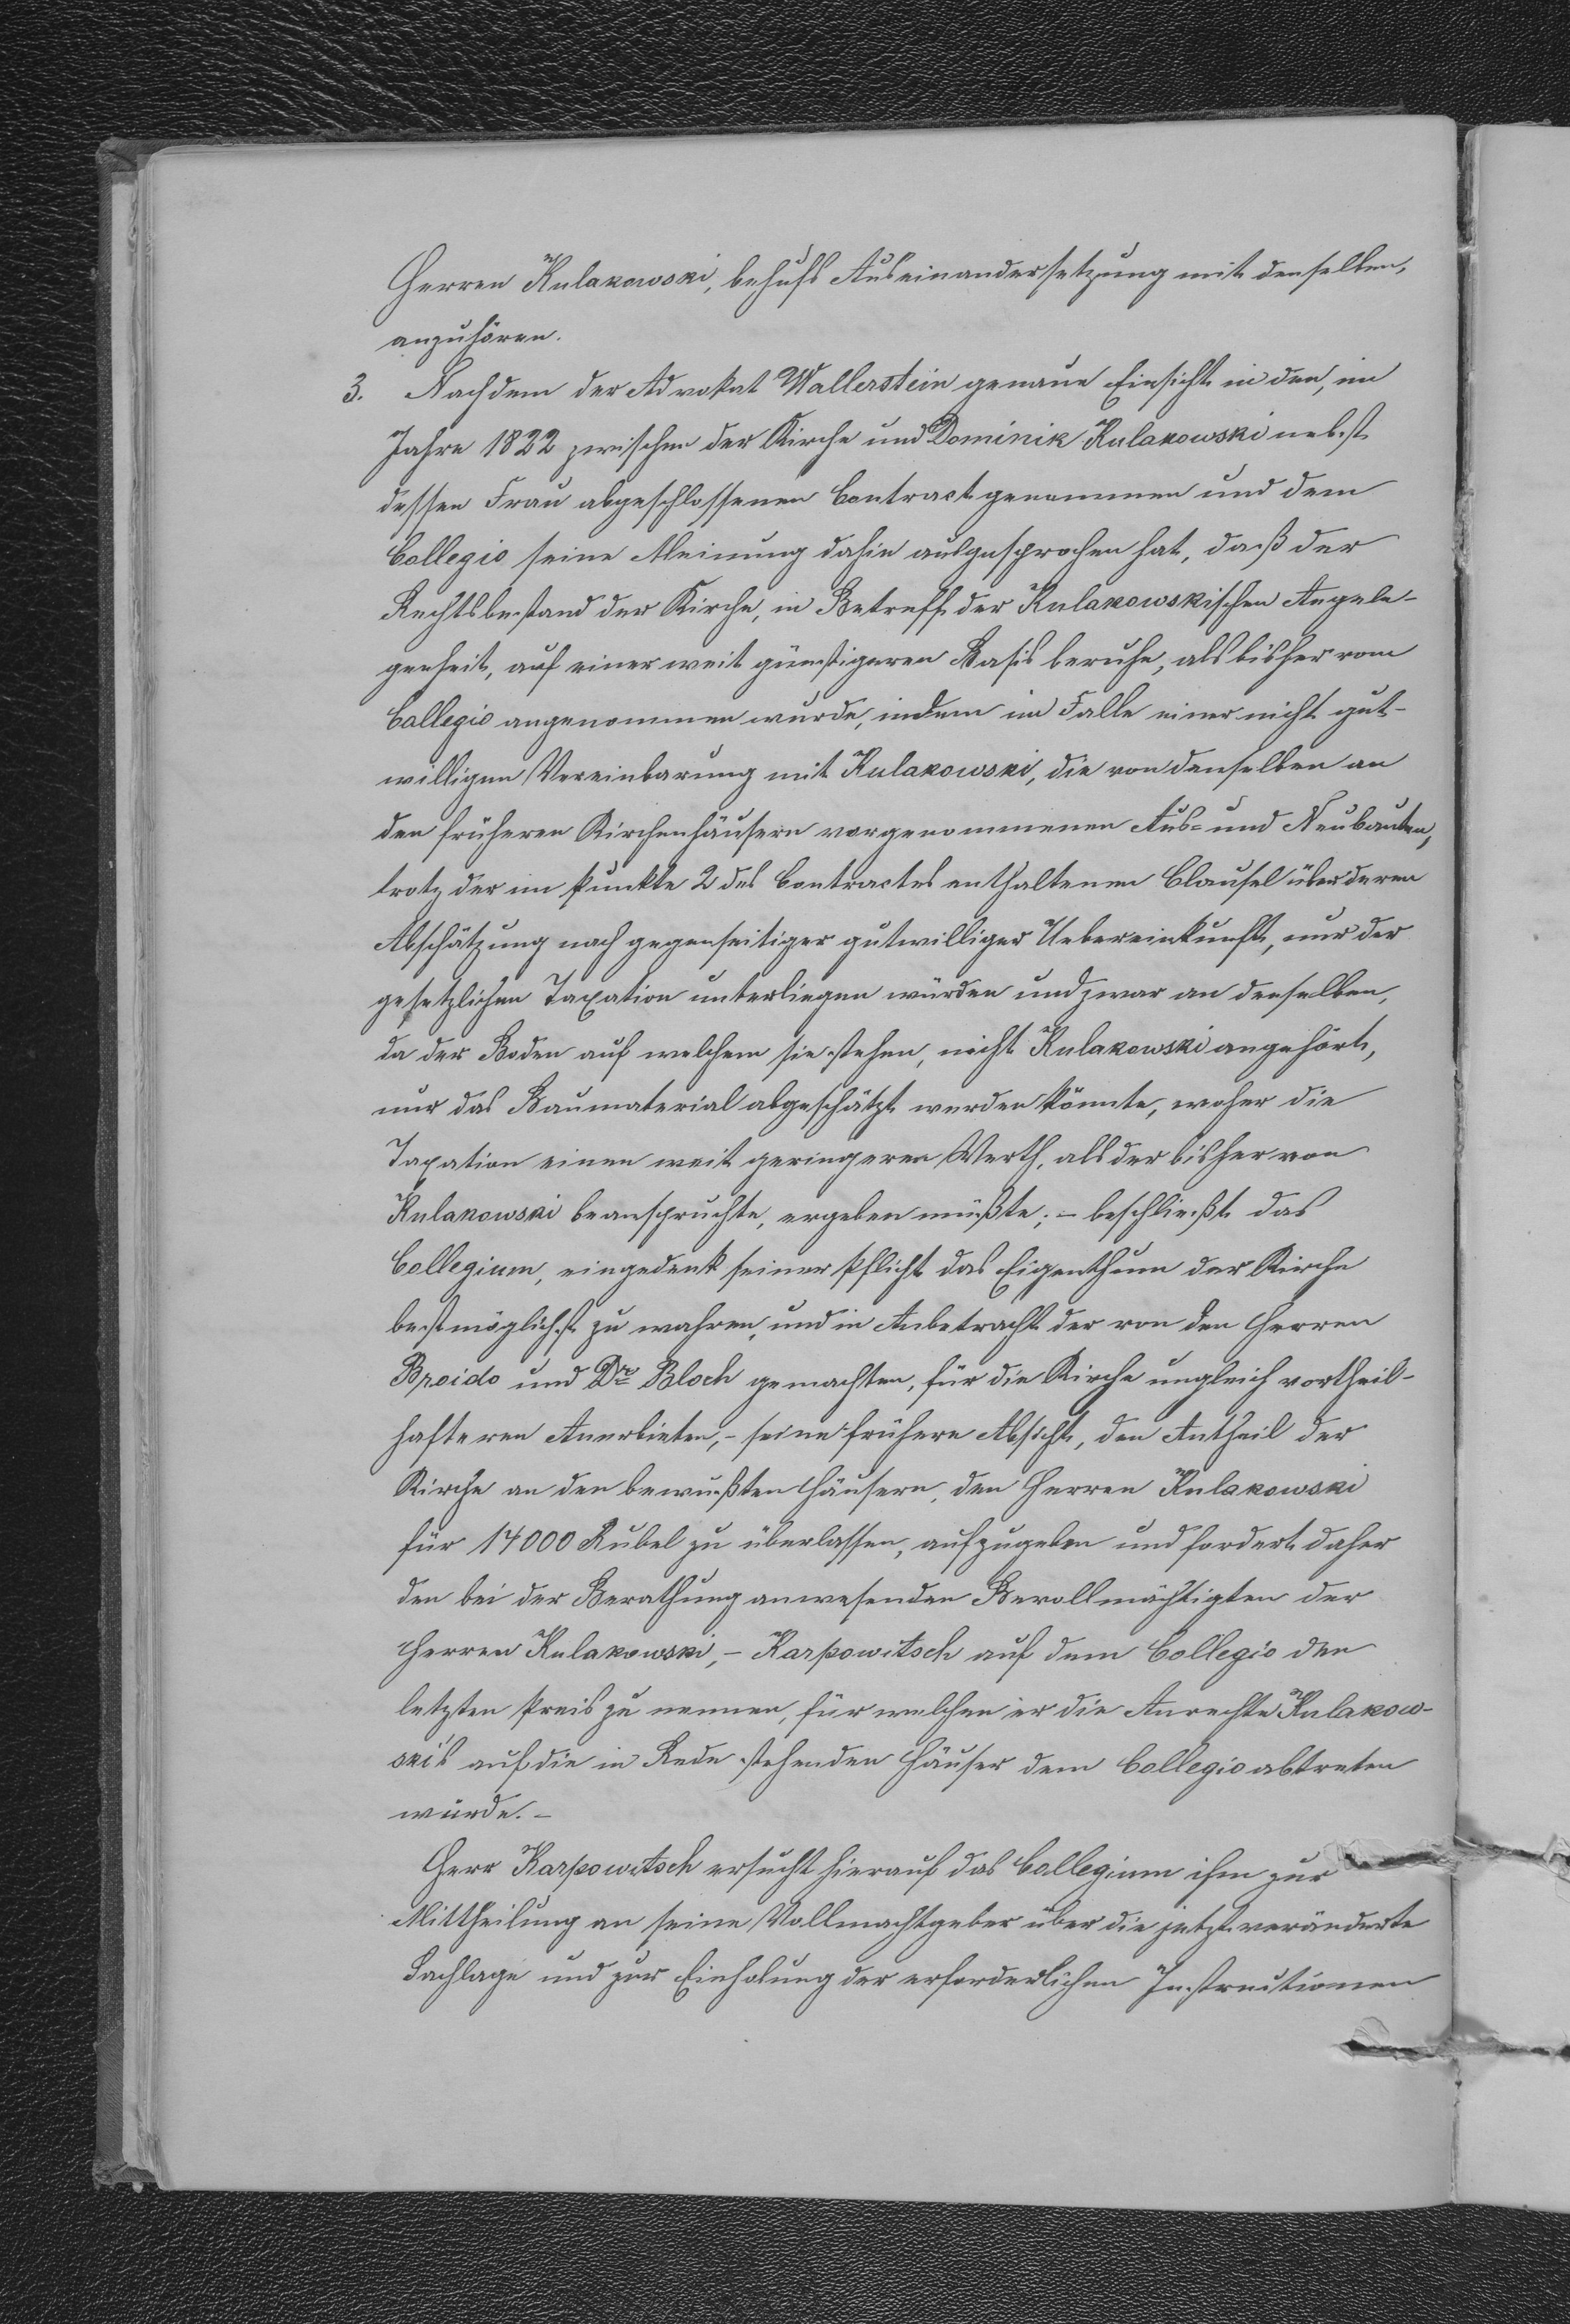 Herren Kulakowski, behufs Auseinandersetzung mit denselben,
anzuhören.
3. Nachdem der Advokat Wallerstein genaue Einsicht in den, im
Jahre 1822 zwischen der Kirche und Dominik Kulakowski nebst
dessen Frau abgeschlossenen Contract genommen und dem
Collegio seine Meinung dahin ausgesprochen hat, daß der
Rechtsbestand der Kirche, in Betreff der Kulakowskischen Angele-
genheit, auf einer weit günstigeren Basis beruhe, als bisher vom
Collegio angenommen wurde, indem im Falle einer nicht gut-
willigen Vereinbarung mit Kulakowski, die von denselben an
den früheren Kirchenhäusern vorgenommenen Aus- und Neubauten,
trotz der im Punkte 2 des Contractes enthaltenen Clausel über deren
Abschätzung nach gegenseitiger gutwilliger Uebereinkunft, nur der
gesetzlichen Taxation unterliegen würden und zwar an denselben,
da der Boden auf welchem sie stehen, nicht Kulakowski angehört,
nur das Baumaterial abgeschätzt werden könnte, woher die
Taxation einen weit geringeren Werth, als der bisher von
Kulakowski beanspruchte, ergeben müßte; - beschließt das
Collegium, eingedenk seiner Pflicht das Eigenthum der Kirche
bestmöglichst zu wahren, und in Anbetracht der von den Herren
Broido und Dr Bloch gemachten, für die Kirche ungleich vortheil-
hafteren Anerbieten, - seine frühere Absicht, den Antheil der
Kirche an den bewußten Häusern, den Herren Kulakowski
für 14000 Rubel zu überlassen, aufzugeben und fordert daher
den bei der Berathung anwesenden Bevollmächtigten der
Herren Kulakowski, - Karpowitsch auf dem Collegio den
letzten Preis zu nennen, für welchen er die Anrechte Kulakow-
ski's auf die in Rede stehenden Häuser dem Collegio abtreten
würde. -
Herr Karpowitsch ersucht hierauf das Collegium ihm zur
Mittheilung an seine Vollmachtgeber über die jetzt veränderte
Sachlage und zur Einholung der erforderlichen Instructionen